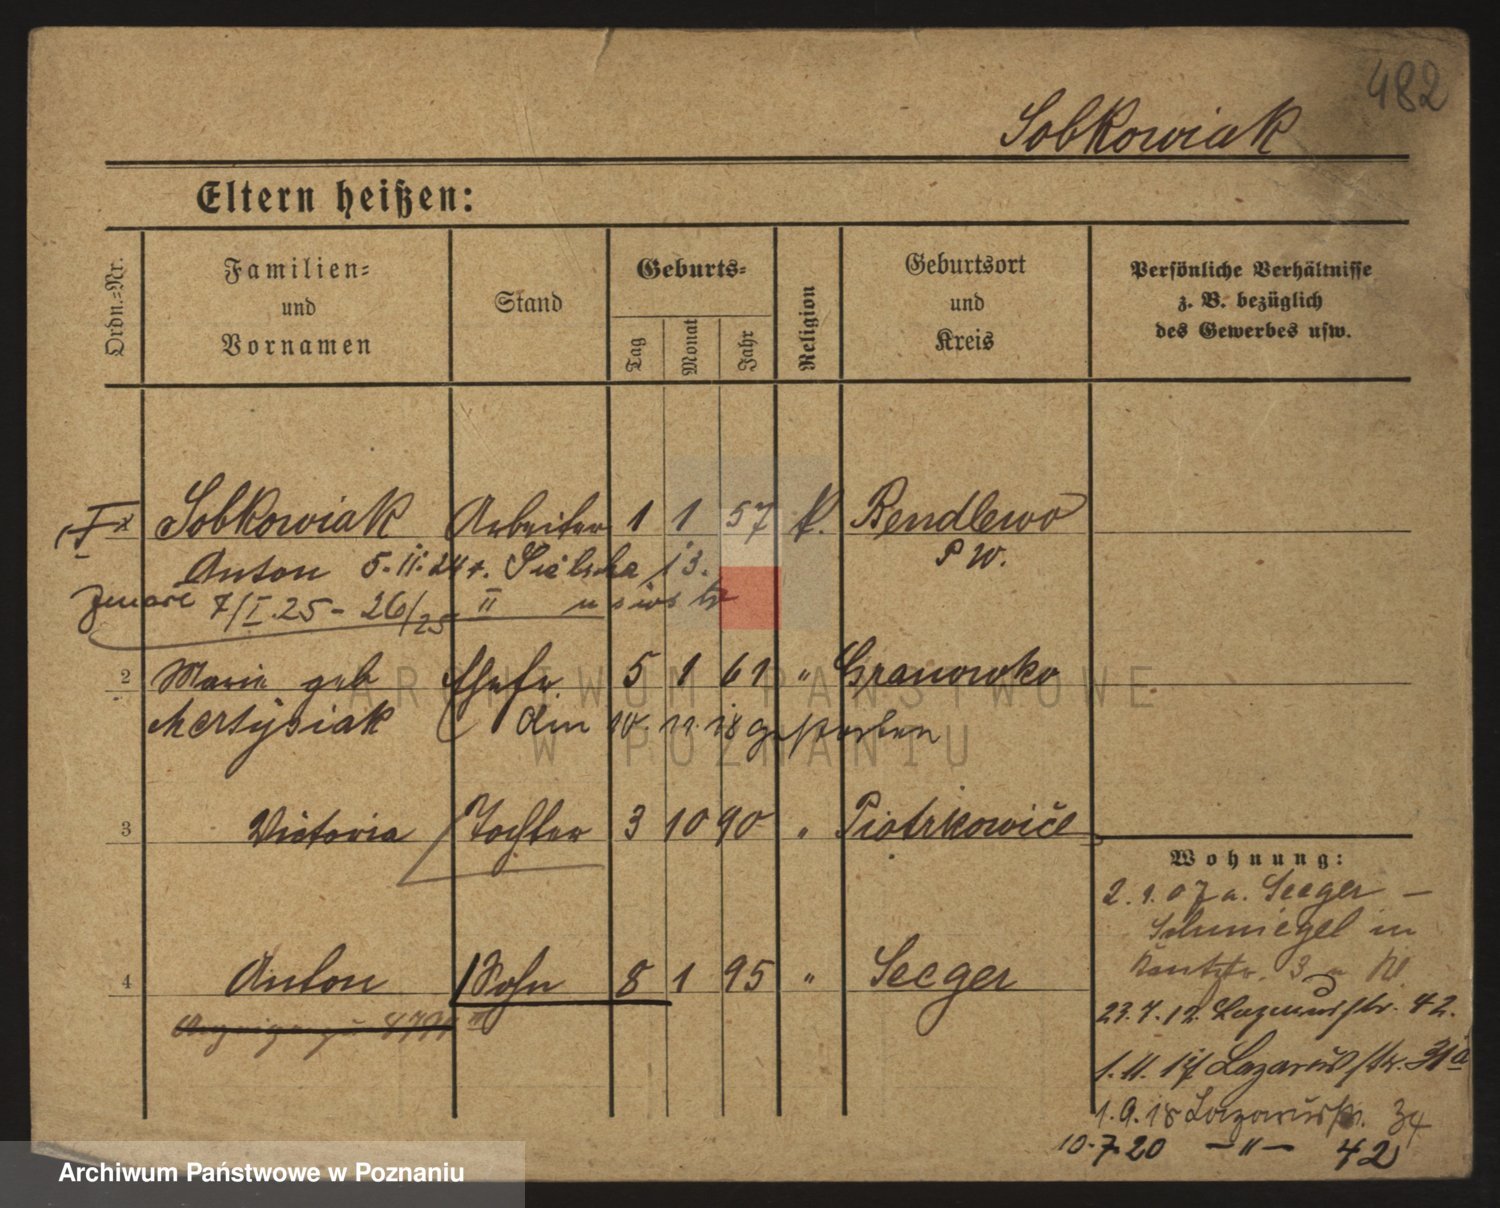 482
Sobkowiak
Eltern heißen:
Ordn.-Nr.
Familien-
und
Vornamen
Stand
Geburts-
Tag
Monat
Jahr
Religion
Geburtsort
und
Kreis
Persönliche Verhältnisse
z. B. bezüglich
des Gewerbes usw.
Sobkowiak Arbeiter 1 1 57 k. Bendlewo
Anton 5.II.24 r. Sielska 13. P W.
7/I.25 - 26/25 II
2 Marie geb Ehefr. 5 1 61 " Granowko
Martysiak Am 10. 11. 18 gestorben
3 Victoria Tochter 3 10 90 " Piotrkowice
4 Anton Sohn 8 1 95 " Seeger
Wohnung:
2. 1. 07 a. Seeger -
Schmiegel in
3
23.7.12. Lazarusstr. 42.
1. 11. 17 Lazarusstr. 31a
1.9.18 Lazarusstr. 34
10.7.20 -"- 42
ARCHIWUM PAŃSTWOWE
W POZNANIU
Archiwum Państwowe w Poznaniu